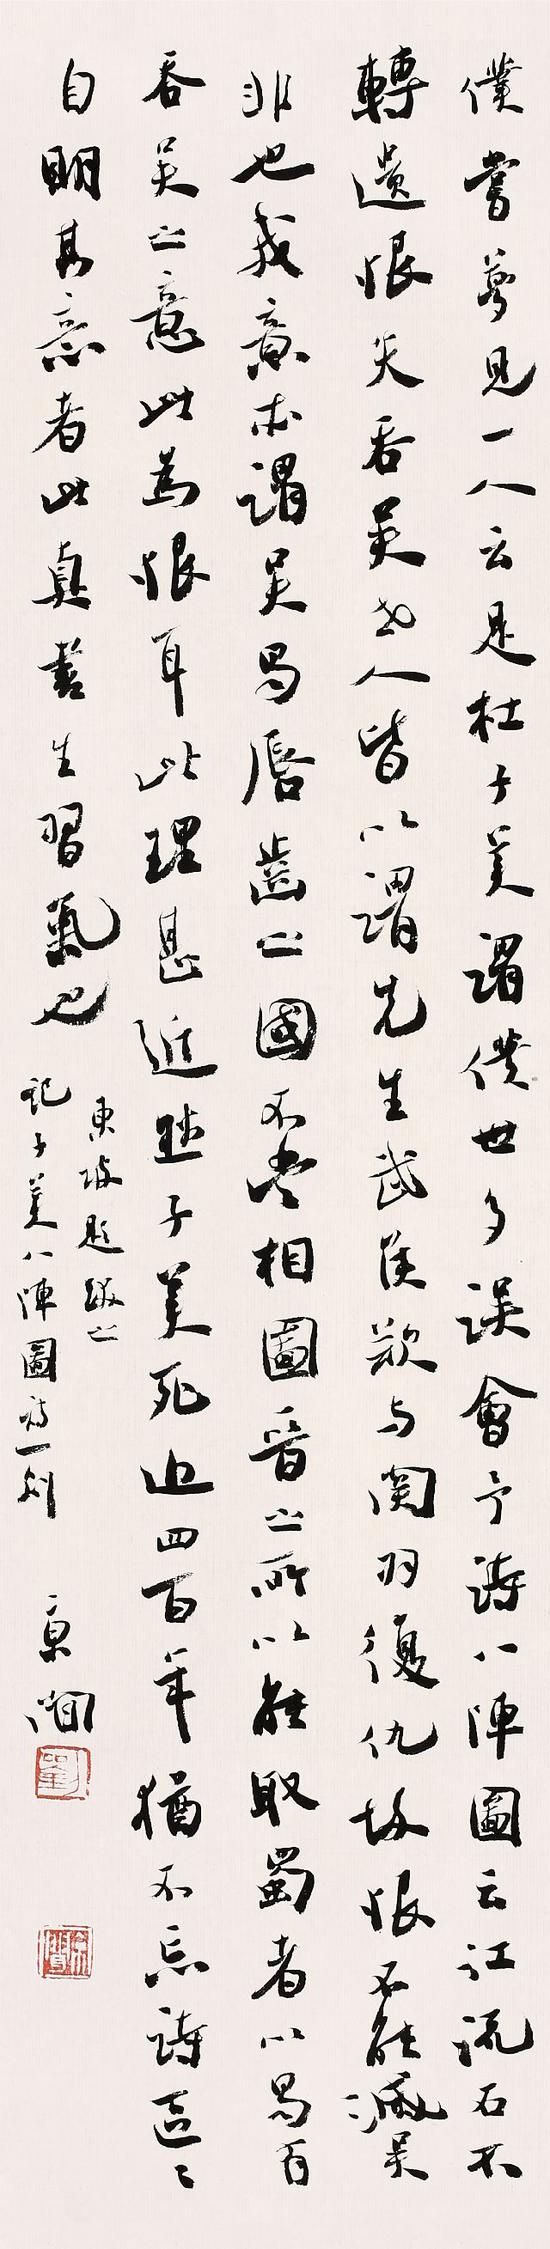 僕嘗夢見一人云是杜子美謂僕世多誤會予詩八陣圖云江流石不
轉遺恨失吞吴世人皆以謂先生武侯欲与関羽復仇故恨不能滅吴
非也我意本謂吴蜀唇齒之國不當相圖晋之所以能取蜀者以蜀有
吞吴之意此為恨耳此理甚近然子美死近四百年猶不忘詩區々
自明其意者此真書生習氣也
東坡題跋之
記子美八陣圖詩一則
京澗